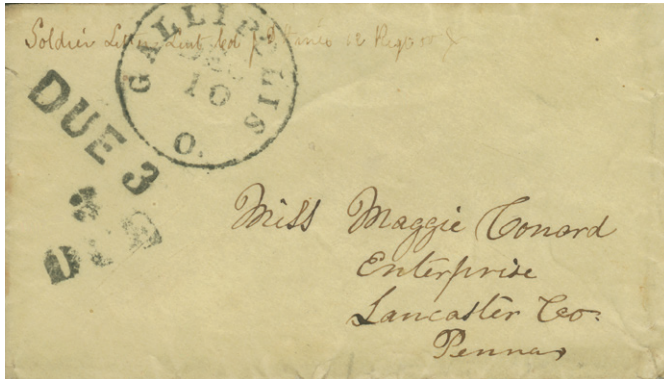 Soldier Letter Lieut Col J P Haines 12 Regt
GALLIPOLIS
DEC
10
O.
DUE 3
DUE 3
Miss Maggie Conard
Enterprise
Lancaster Co:
Penna